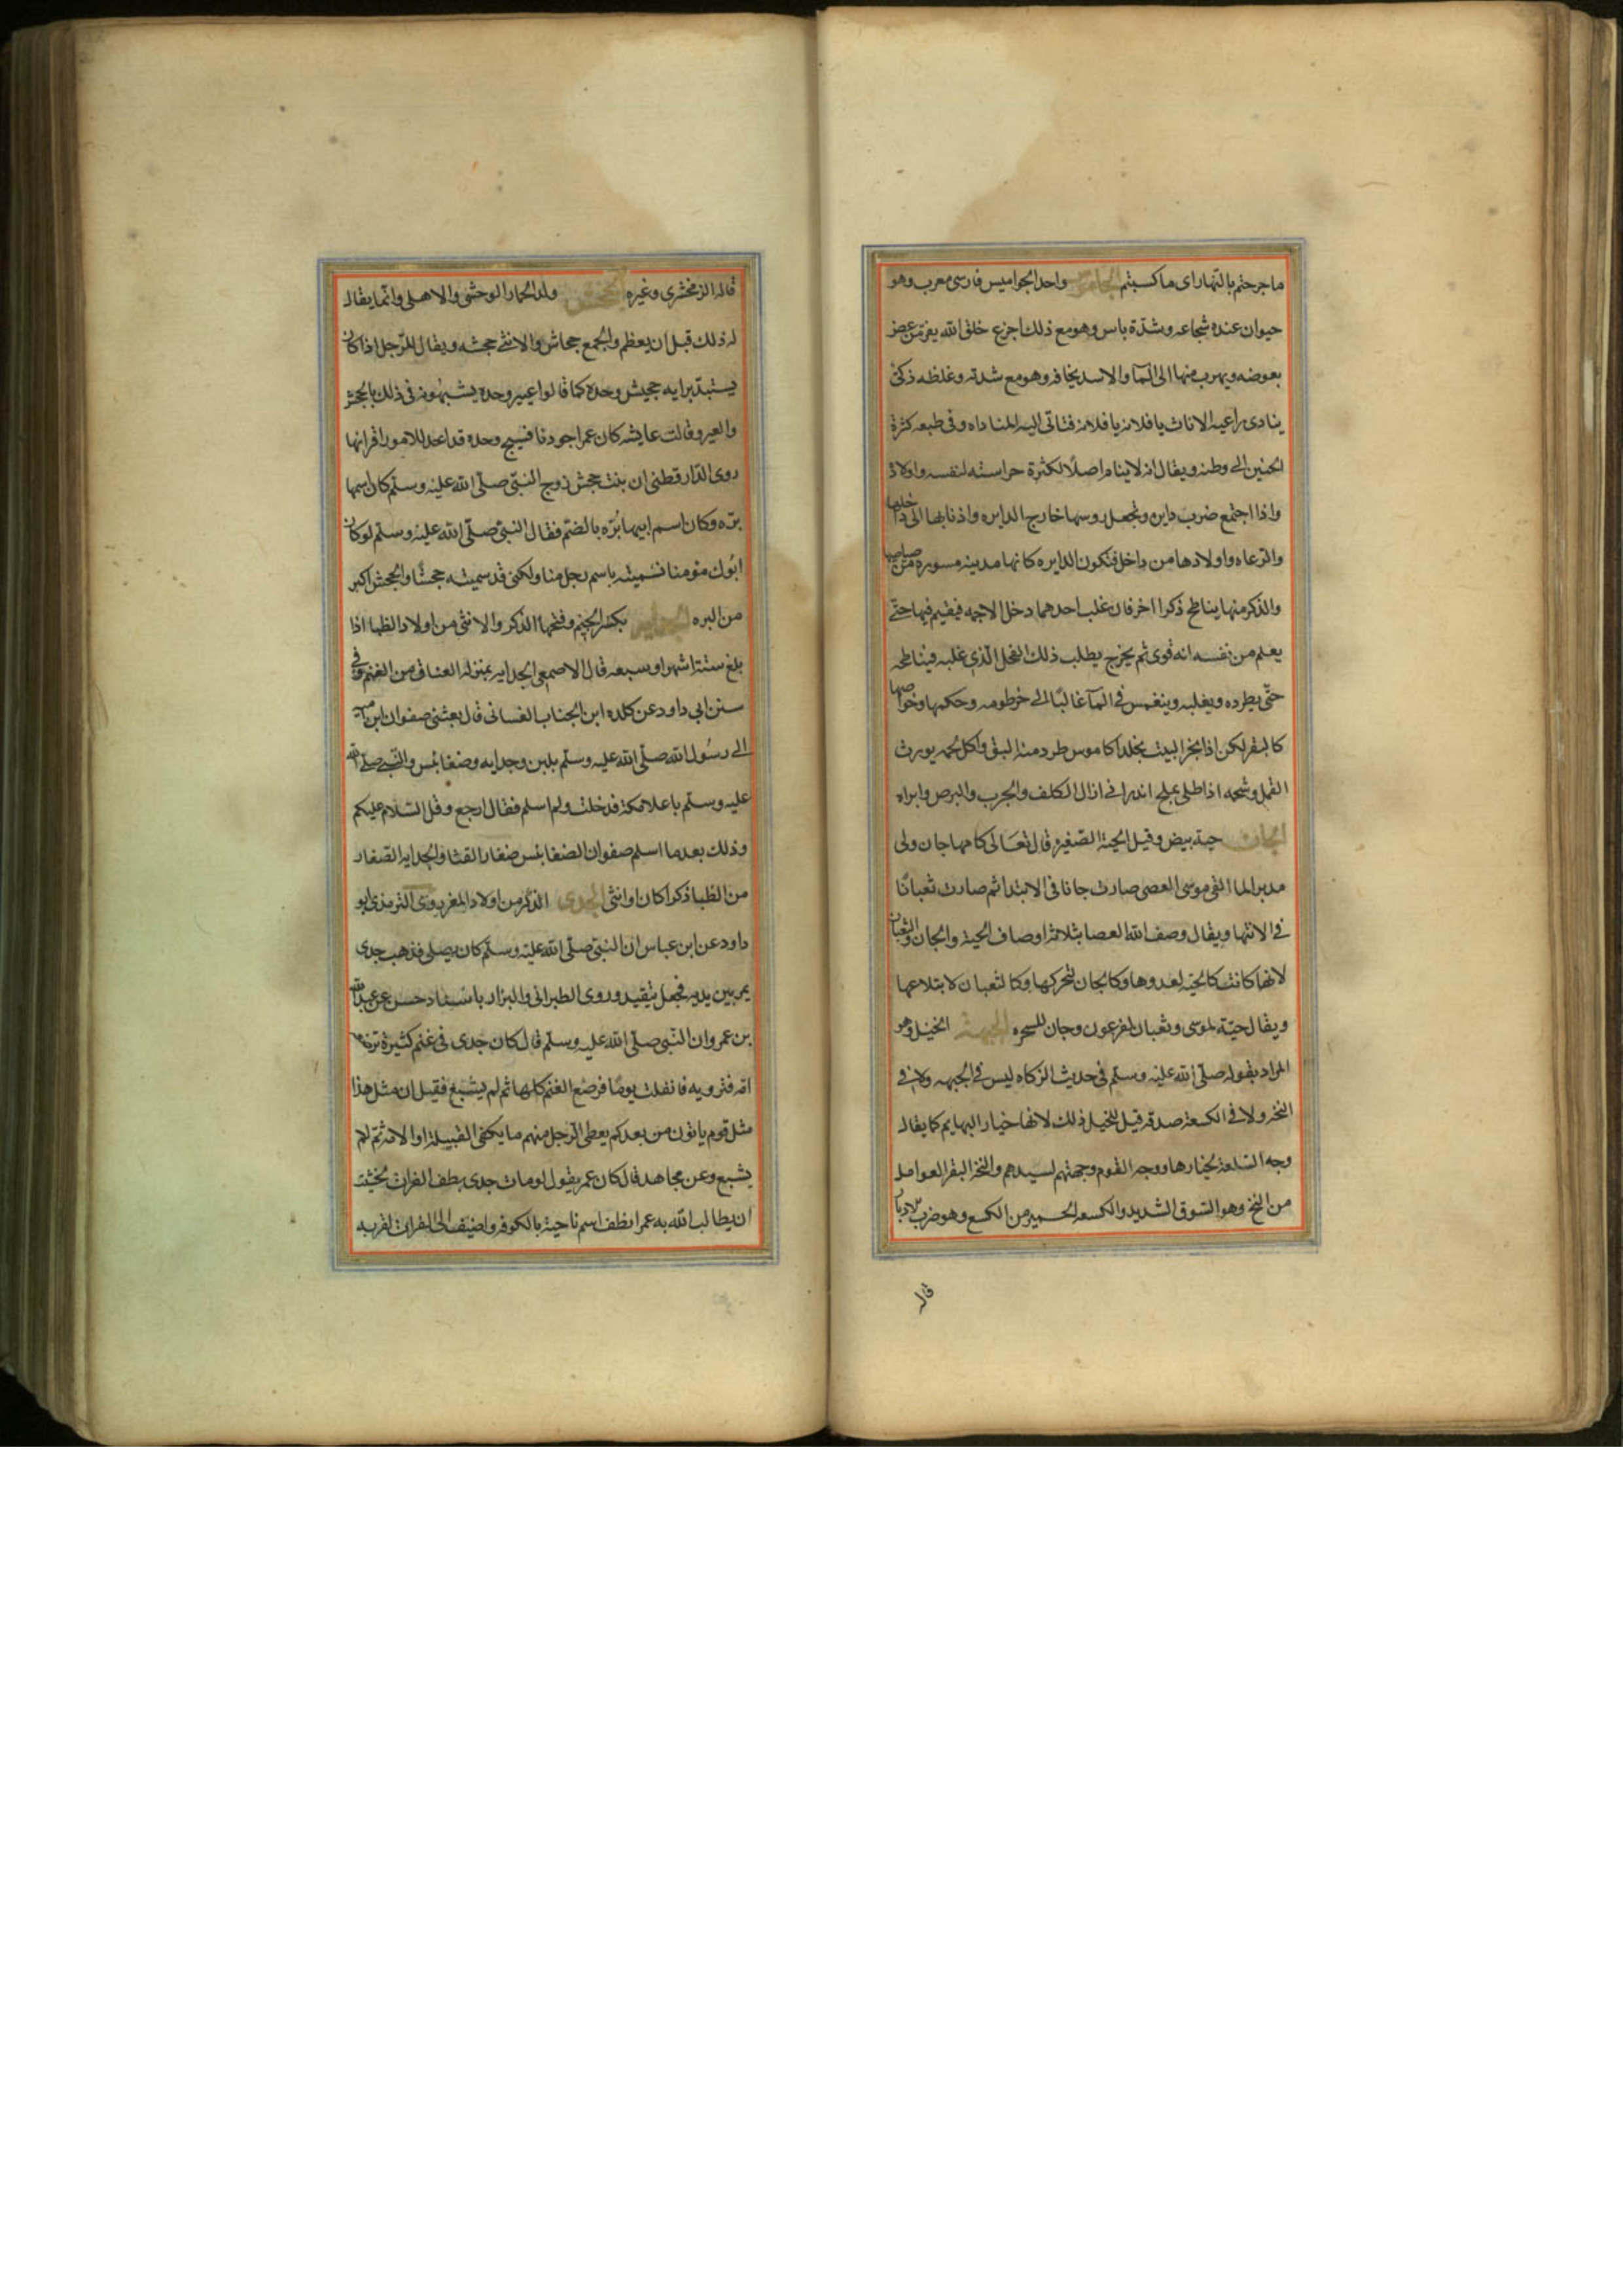 ما جرحتم بالنهار اى ما كسبتم الجاموس واحد الجواميس فارسى معرب وهو
حيوان عنده شجاعه وشدّة باس وهو مع ذلك اجزع خلق الله يفرق من عض
بعوضه ويهرب منها الى المآ والاسد يخافه وهو مع شدته وغلظه ذكىّ
ينادى راعيه الاناث يا فلانه يا فلانه فتاتى اليه المناداه وفى طبعه كثرة
الحنين الى وطنه ويقال انه لاينام اصلًا لكثرة حراسته لنفسه واولاده
واذا اجتمع ضرب دايره وتجعل روسها خارج الدايره واذنابها الى داخلها
والرعاه واولادها من داخل فتكون الدايره كانها مدينه مسوره من صياصيها
والذكر منها يناطح ذكرا اخر فان غلب احدهما دخل الاجمه فيقيم فيها حتى
يعلم من نفسه انه قوى ثم يخرج يطلب ذلك الفحل الذى غلبه فيناطحه
حتّى يطرده ويغلبه وينغمس فى المآ غالبًا الى خرطومه وحكمها وخواصها
كالبقر لكن اذا بخر البيت بجلد الكاموس طرد منه البق واكل لحمه يورث
القمل وشحمه اذا طلى بملح اندرانى ازال الكلف والجرب والبرص وابراه
الجان حية بيض وقيل الحية الصغيرة قال تعالى كانها جان ولى
مدبرا لما القى موسى العصى صارت جانا فى الابتدا ثم صارت ثعبانًا
فى الانتها ويقال وصف الله العصا بثلاثة اوصاف الحية والجان والثعبان
لانها كانت كالحيه لعدوها وكالجان لتحركها وكالثعبان لابتلاعها
ويقال حيّة لموسى وثعبان لفرعون وجان للسحره الجبهة الخيل وهو
المراد بقوله صلّى الله عليه وسلم فى حديث الزكاه ليس فى الجبهه ولا فى
النخه ولا فى الكسعة صدقه قيل للخيل ذلك لانها خيار البهايم كما يقال
وجه السلعة لخيارها ووجه القوم وجبهتهم لسيدهم والنخه البقر العوامل
من النخ وهو السّوق الشديد والكسعه الحمير من الكسع وهو ضرب الادبار
قاله
قاله الزمخشرى وغيره الجحش ولد الحمار الوحشى والاهلى وانّما يقال
له ذلك قبل ان يعظم والجمع جحاش والانثى جحشه ويقال للرّجل اذا كان
يستبدّ برايه جحيش وحده كما قالوا عيير وحده يشبهونه فى ذلك بالجحش
والعير وقالت عايشه كان عمر اجودنا نسيج وحده قد اعد للامور اقرانها
روى الدّارقطنى ان بنت جحش زوج النبى صلّى الله عليه وسلّم كان اسمها
برّه وكان اسم ابيها بُرّه بالضم فقال النبىّ صلّى الله عليه وسلّم لو كان
ابوك مومنا نسميته باسم رجل منا ولكنى قد سميته جحشًا والجحش اكبر
من البره الجدايه بكسر الجيم وفتحها الذكر والانثى من اولاد الظبا اذا
بلغ ستة اشهر او سبعه قال الاصمعى الجدايه بمنزله العناق من الغنم وفى
سنن ابى داود عن كلده ابن الجناب الغسانى قال بعثنى صفوان ابن اميه
الى رسُول الله صلّى الله عليه وسلّم بلبن وجدايه وضغابيس والنّبى صلى الله
عليه وسلّم باعلا مكة فدخلت ولم اسلم فقال ارجع وقل السّلام عليكم
وذلك بعد ما اسلم صفوان الضغابيس صغار القثا والجدايه الصغار
من الظبا ذكرا كان او انثى الجدى الذكر من اولاد المعز روى الترمذى ابو
داود عن ابن عباس ان النبىّ صلّى الله عليه وسلّم كان يصلى فذهب جدى
يمر بين يديه فجعل يتقيه وروى الطبرانى والبزار باسناد حسن عن عبد الله
بن عمرو ان النّبى صلّى الله عليه وسلّم قال كان جدى فى غنم كثيرة ترضعه
امّه فترويه فانفلت يومًا فرضع الغنم كلها ثم لم يشبع فقيل ان مثل هذا
مثل قوم ياتون من بعدكم يعطى الرجل منهم ما يكفى القبيلة او الامه ثمّ لم
يشبع وعن مجاهد قال كان عمر يقول لو مات جدى بطف الفرات لخشيت
ان يطالب الله به عمر الطف اسم ناحية بالكوفه واضيف الى الفرات لقربه